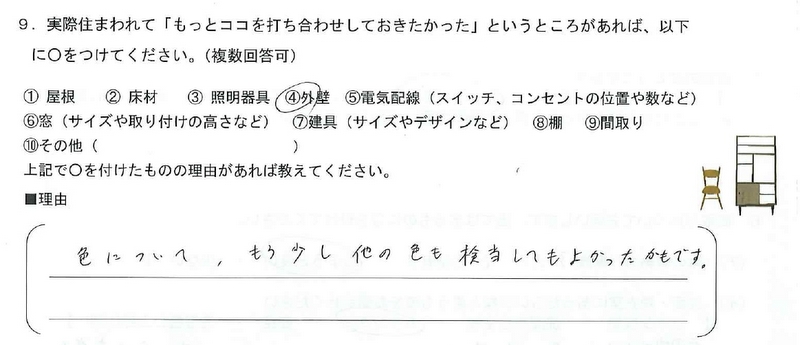 ９．実際住まわれて「もっとココを打ち合わせしておきたかった」というところがあれば、以下
に〇をつけてください。（複数回答可）
① 屋根　② 床材　③ 照明器具　④外壁　⑤電気配線（スイッチ、コンセントの位置や数など）
⑥窓（サイズや取り付けの高さなど）　⑦建具（サイズやデザインなど）　⑧棚　⑨間取り
⑩その他（　　　　　　　　　　　　）
上記で〇を付けたものの理由があれば教えてください。
■理由
色について，もう少し他の色も検当してもよかったかもです。